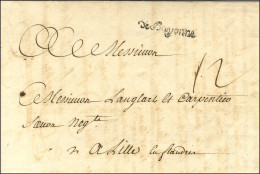 Messieurs
de Bayonne
12
Messieurs Langlart et Carpentier
Negts
A Lille en flandres